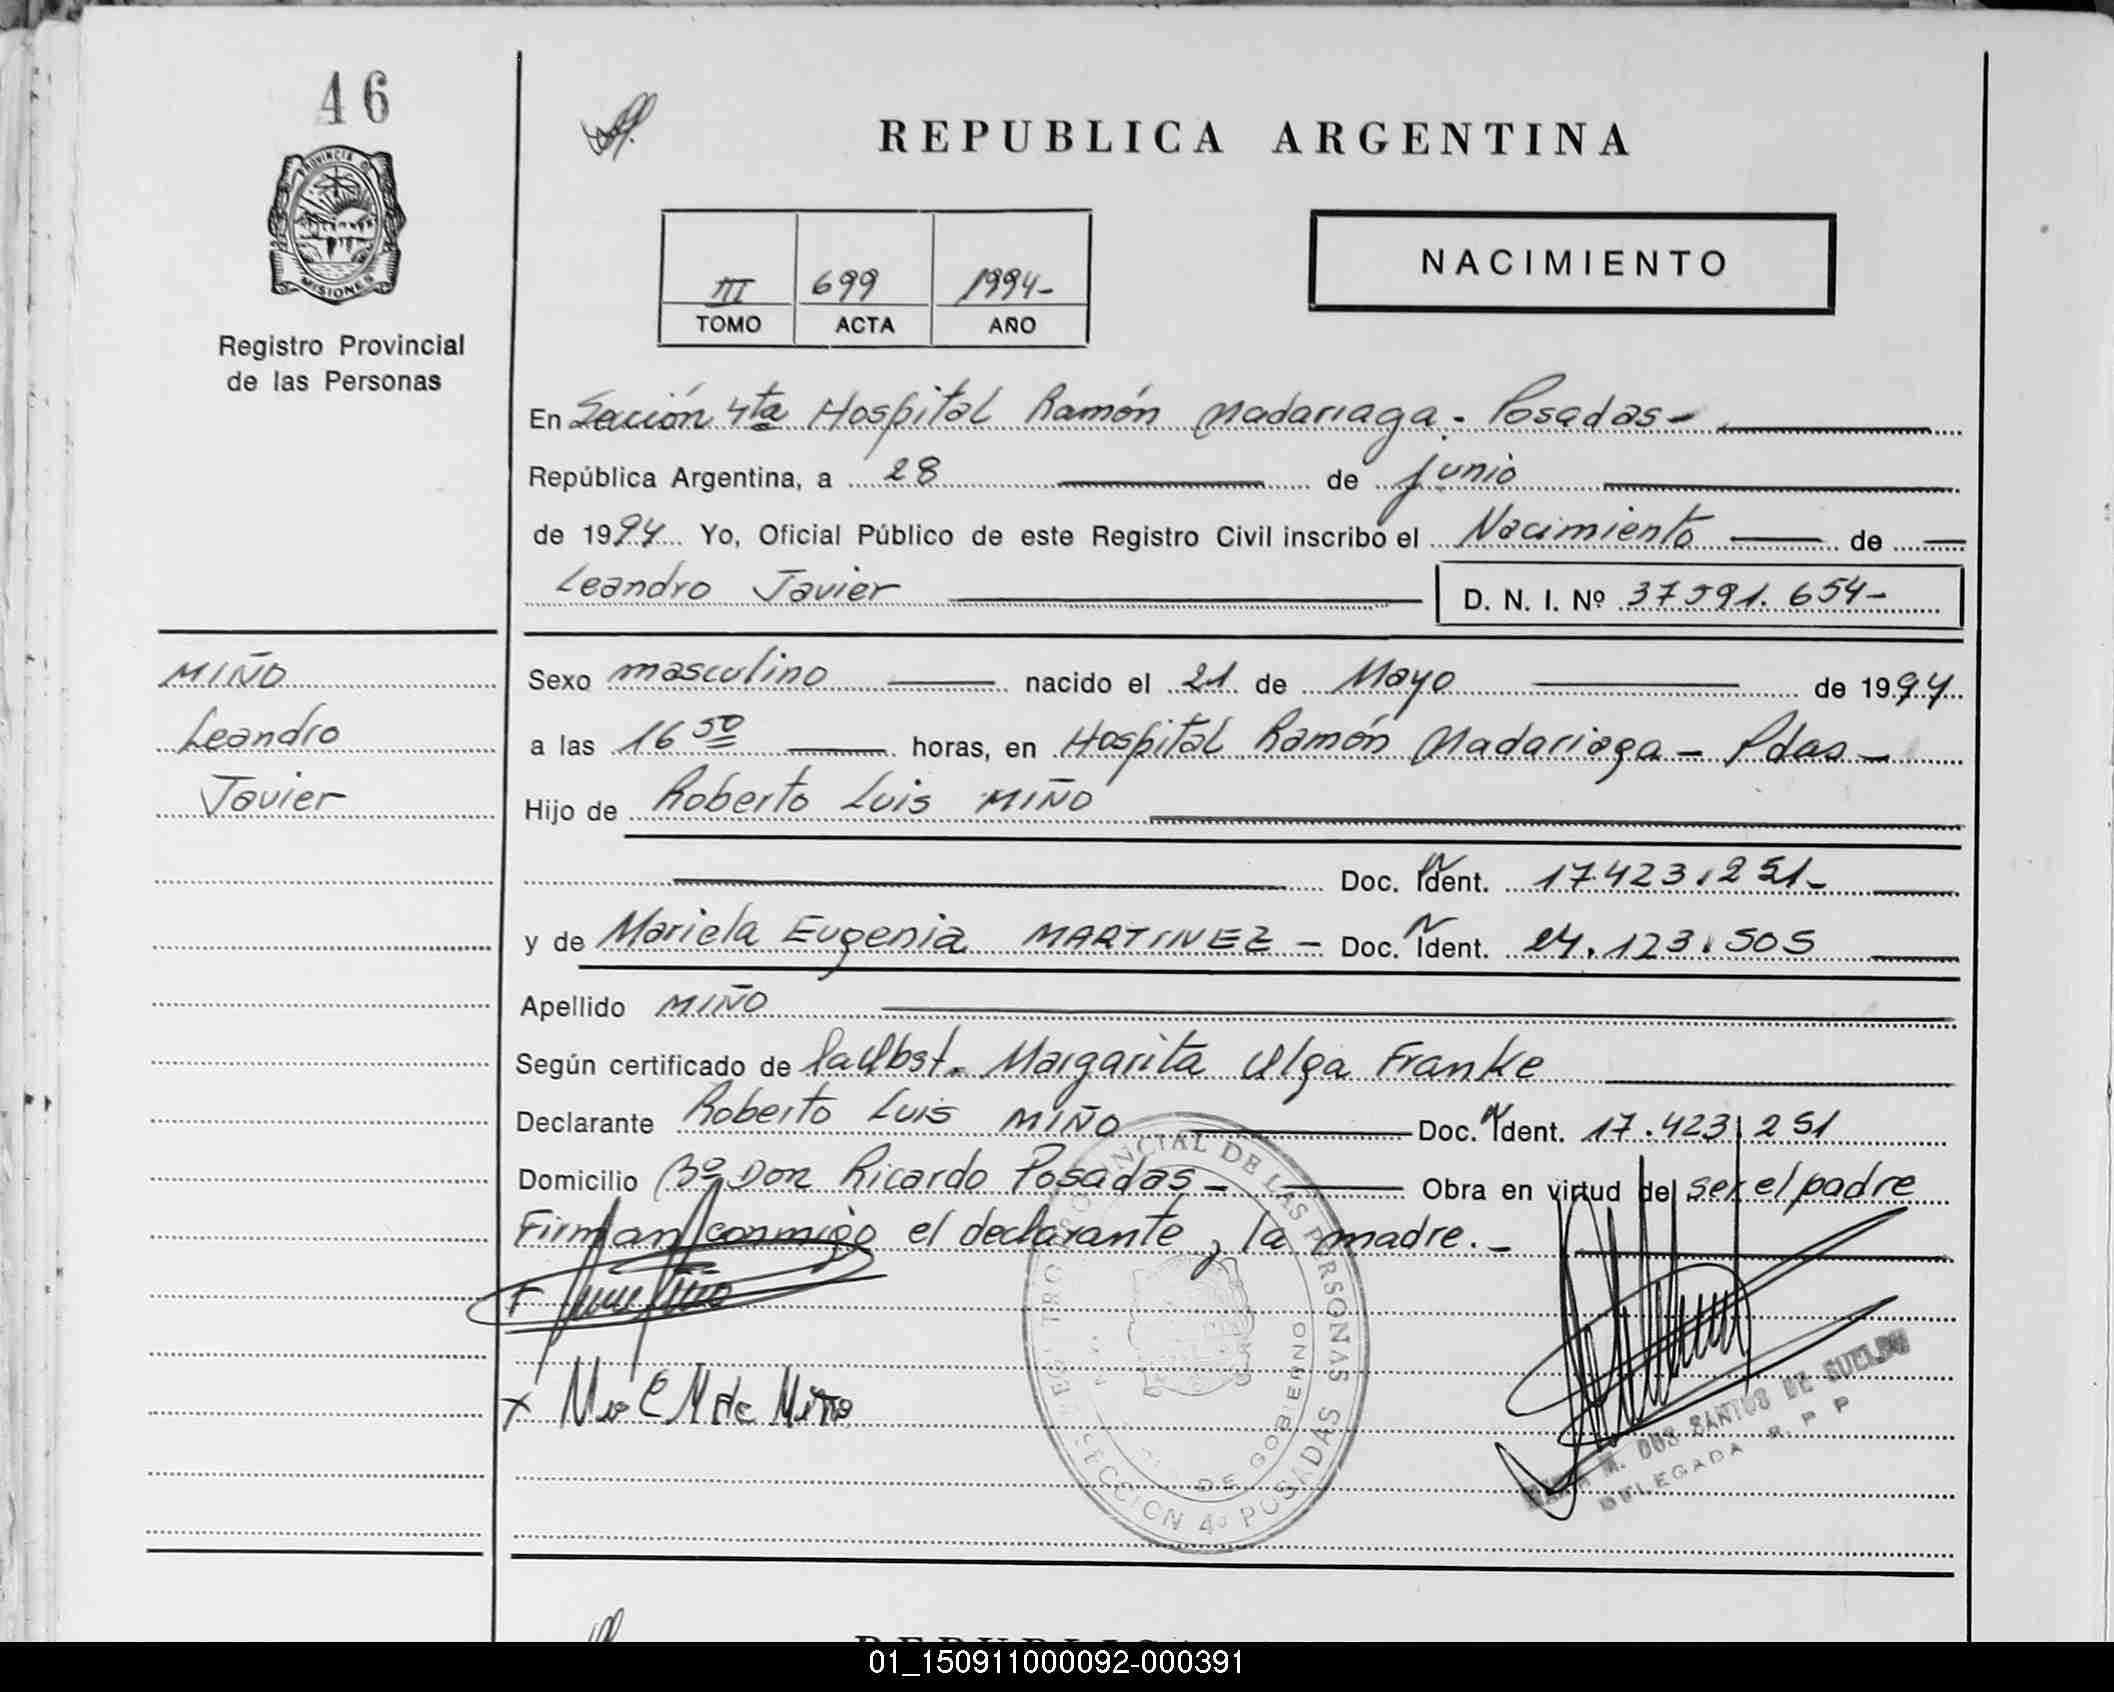 46
PROVINCIA DE
MISIONES
Registro Provincial
de las Personas
REPUBLICA ARGENTINA
III 699 1994-
TOMO ACTA AÑO
NACIMIENTO
En Sección 4ta Hospital Ramón Madariaga - Posadas -
República Argentina, a 28 de junio
de 1994 Yo, Oficial Público de este Registro Civil inscribo el Nacimiento de
Leandro Javier D. N. I. Nº 37.591.654-
MIÑO
Leandro
Javier
Sexo masculino nacido el 21 de Mayo de 1994
a las 16 50 horas, en Hospital Ramón Madariaga - Pdas -
Hijo de Roberto Luis MIÑO
Doc. Ident. 17.423.251-
y de Mariela Eugenia MARTINEZ - Doc. Ident. 24.123.505
Apellido MIÑO
Según certificado de la Obst. Margarita Olga Franke
Declarante Roberto Luis MIÑO Doc. Ident. 17.423.251
Domicilio Bº Don Ricardo Posadas - Obra en virtud de ser el padre
Firman conmigo el declarante, la madre. -
x M E M de Miño
PROVINCIAL DE LAS PERSONAS
DE GOBIERNO
SECCION 4º POSADAS
M. DOS SANTOS DE
DELEGADA R. P. P.
01_150911000092-000391